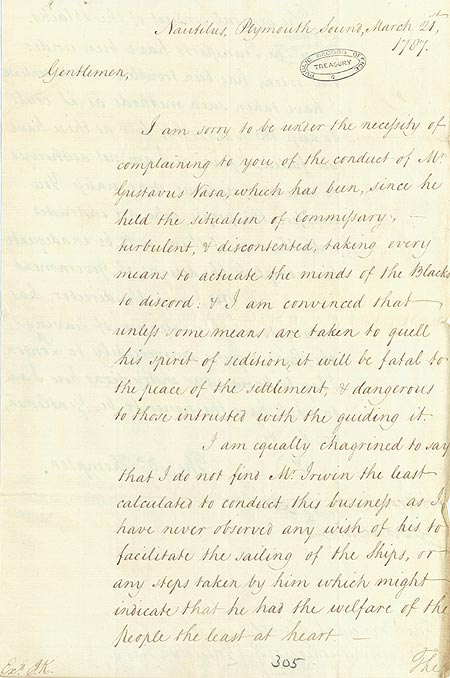 Nautilus, Plymouth Sound, March 21,
1787.
PUBLIC RECORD OFFICE
TREASURY
Gentlemen,
I am sorry to be under the necessity of
complaining to you of the conduct of Mr
Gustavus Vasa, which has been, since he
held the situation of Commissary, —
turbulent, & discontented, taking every
means to actuate the minds of the Blacks
to discord: & I am convinced that
unless some means are taken to quell
his spirit of sedition, it will be fatal to
the peace of the settlement, & dangerous
to those intrusted with the guiding it.
I am equally chagrined to say
that I do not find Mr. Irwin the least
calculated to conduct this business: as I
have never observed any wish of his to
facilitate the sailing of the Ships, or
any steps taken by him which might
indicate that he had the welfare of the
people the least at heart —
The
Exd. J.K.
305